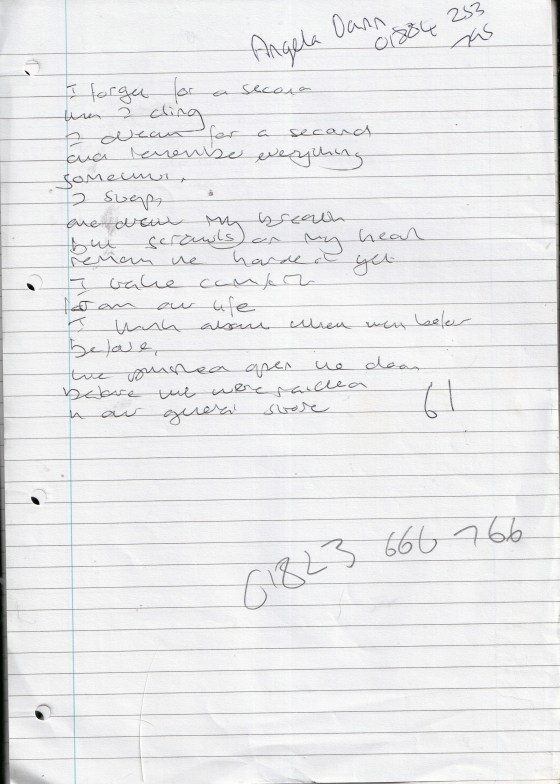 Angela Dann
01884 253
745
I forget for a second
when I cling
I dream for a second
and remember everything
I swap,
and draw my breath
but scrawls on my heart
remain the harder yet
I value comfort
our life
I think about when
before,
we pushed open the door
before we were
in our general store
61
01823 666 766